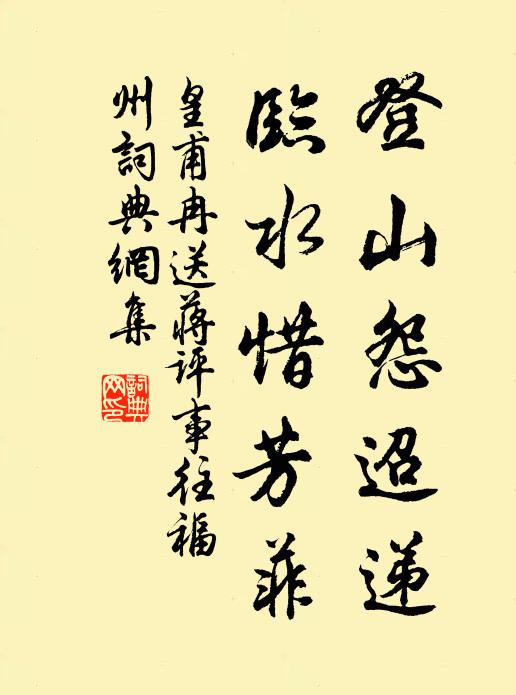 登山怨迢递
臨水惜芳菲
皇甫冉送蔣评事往福
州詞典網集
詞典
网印